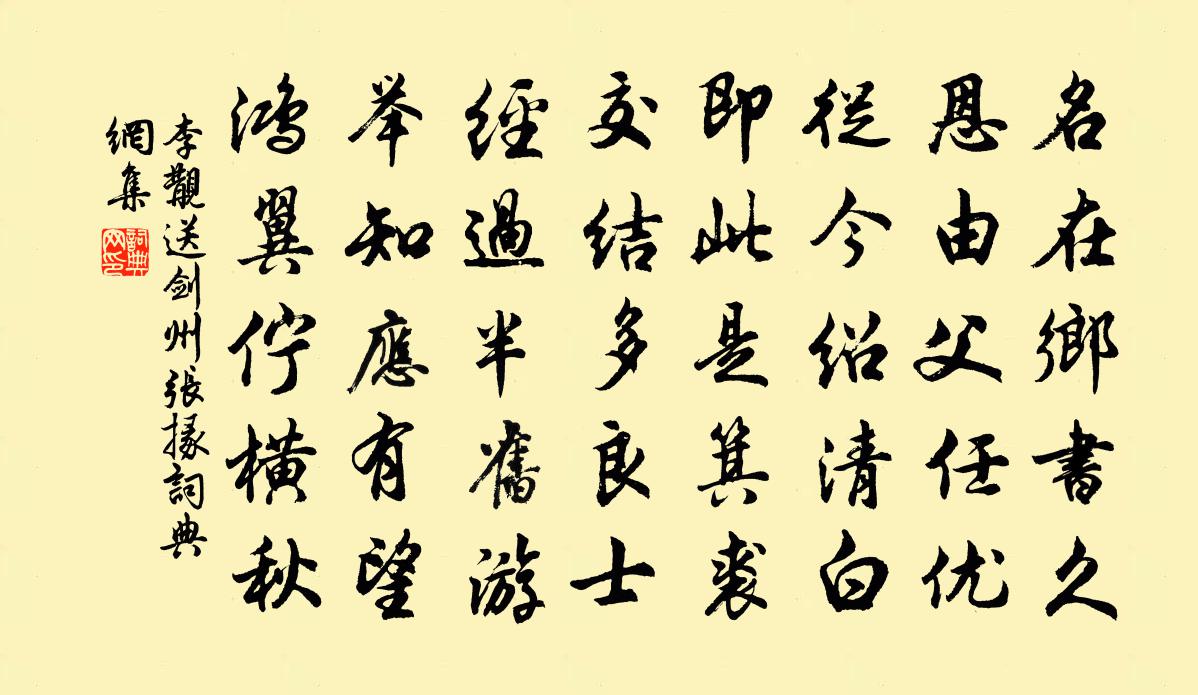 名在鄉書久
恩由父任优
從今紹清白
即此是箕裘
交结多良士
經過半舊游
举知應有望
鴻翼佇橫秋
李觀送劍州張掾詞典
網集
詞典
网印